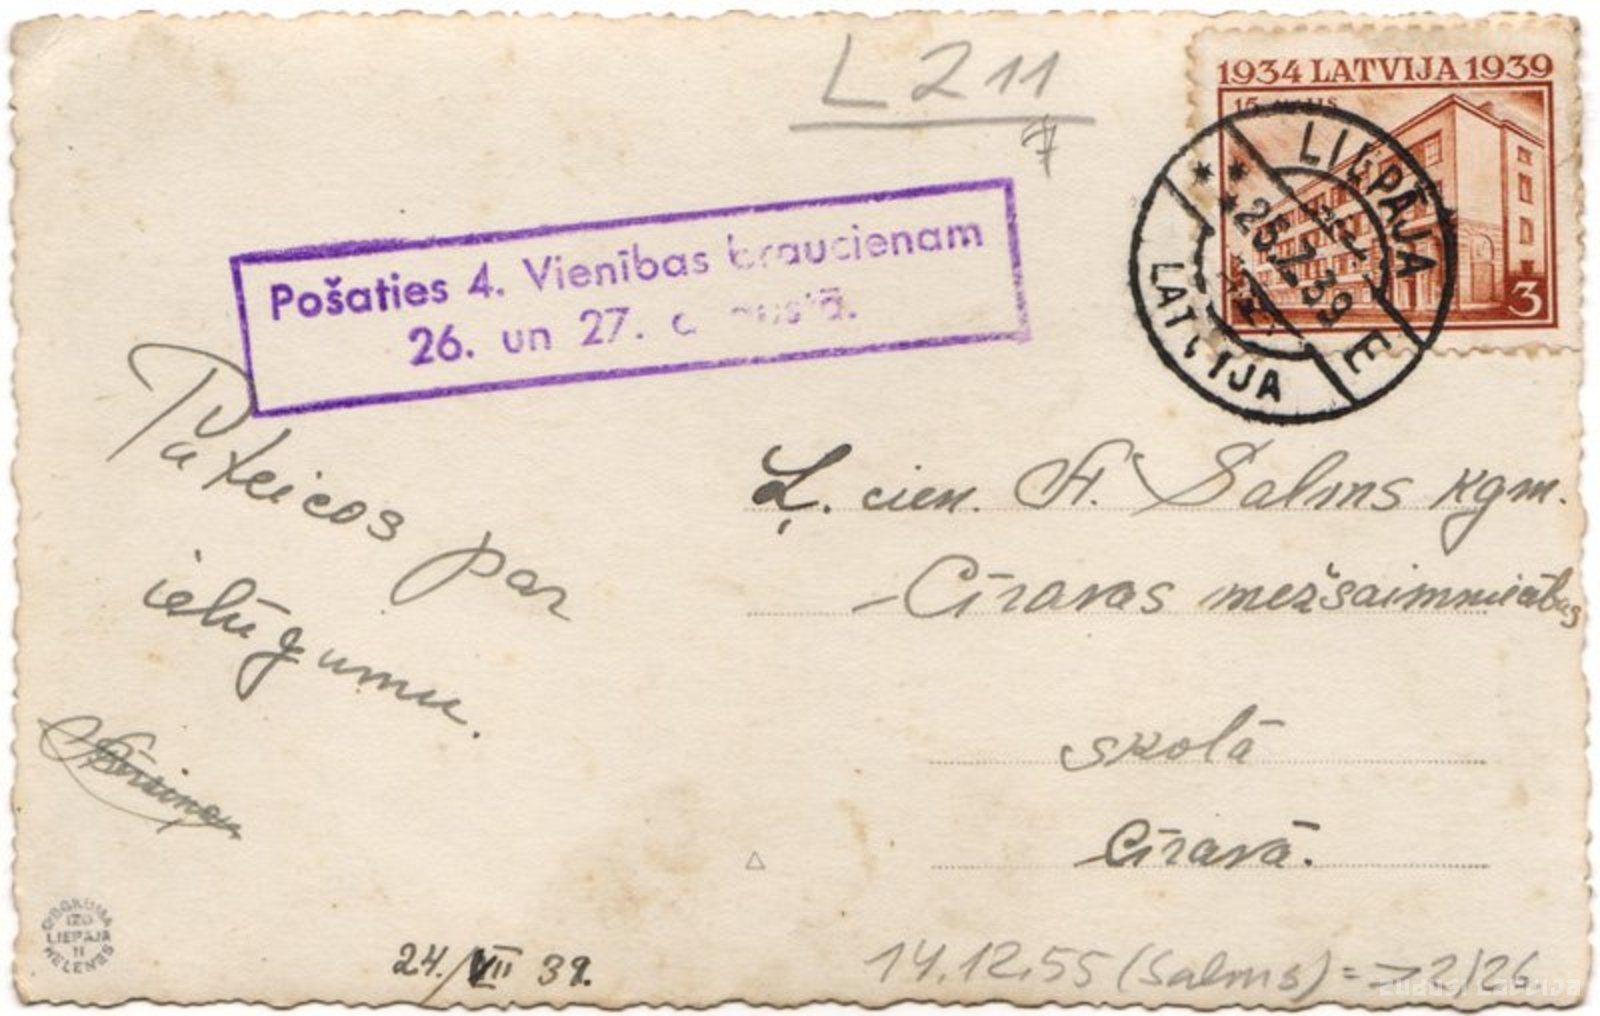 L 211
1934 LATVIJA 1939
15. MAIJS
3
LIEPĀJA
25.7.39
E
LATVIJA
Pošaties 4. Vienības braucienam
26. un 27. augustā.
Pateicos par
ielūgumu.
Ļ. cien. A. Salms kgm.
Cīravas mežsaimniecības
skolā
Cīravā.
IZD
LIEPĀJA
24./VII 39.
14.12.55 (Salms) = > 2/26
zudusi Latvija